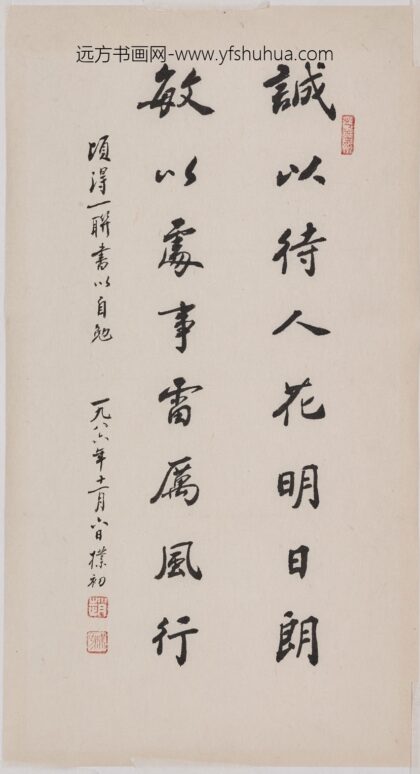 远方书画网-www.yfshuhua.com
誠以待人花明日朗
敏以處事雷厲風行
頃得一聯書以自勉 一九八六年十一月八日樸初